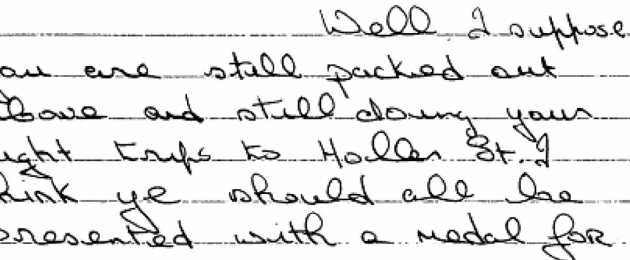 Well I suppose
ou are still packed out
above and still doing your
ight trips to Holles St. I
hink ye should all be
presented with a medal for